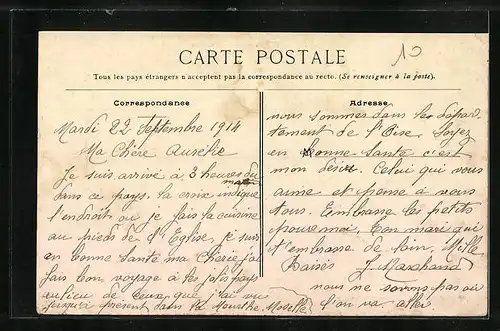 CARTE POSTALE
10
Tous les pays étrangers n'acceptent pas la correspondance au recto. (Se renseigner à la poste).
Correspondance
Mardi 22 Septembre 1914
Ma Chère Aurélie
Je suis arrivé à 3 heures du
matin
dans ce pays. la croix indique
l'endroit ou je fais la cuisine
au pieds de l'Eglise, je suis
en bonne santé ma Cherie j'ai
fais bon voyage à les jolis pays
aulieu de ceux, que j'ai vu
jusqu'à présent dans la Meurthe. Moselle
Adresse
nous sommes dans les dépar-
tement de l'Oise, Soyez
en bonne Santé c'est
mon désire. Celui qui vous
aime et pense à vous
tous. Embrasse les petits
pour moi, ton mari qui
t'embrasse de loin. Mille
Baisés J. Marchand
nous ne savons pas ou
l'on va aller